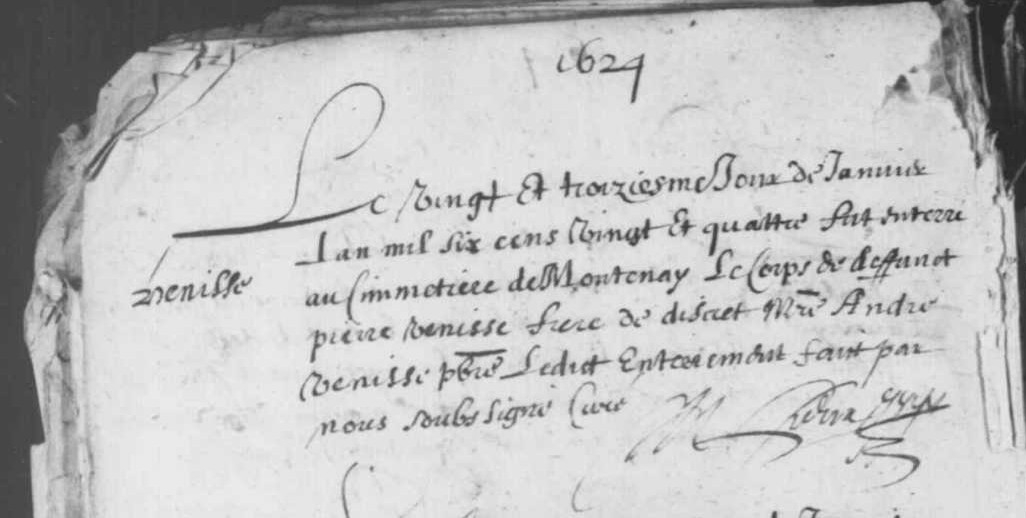 1624
Le Vingt Et troiziesme Jour de Janvier
venisse
Lan mil six cens Vingt Et quattre fut enterré
au Cimmetiere de Montenay Le Corps de deffunct
pierre venisse frere de discret Mre Andre
venisse pbre Ledict Enterrement faict par
nous soubs signé Curé